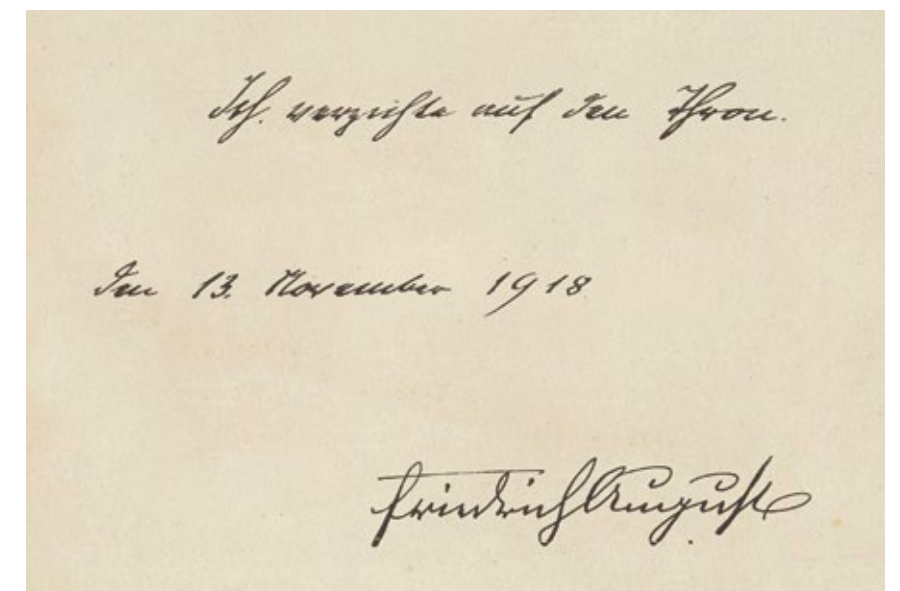 Ich verzichte auf den Thron.
Den 13. November 1918
Friedrich August